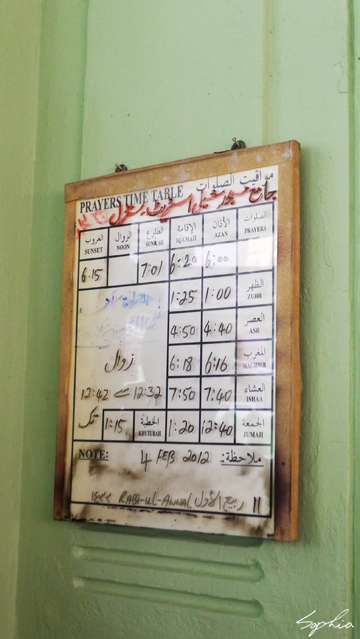 مواقيت الصلوات
PRAYERS TIME TABLE
جامع مسجد
الغروب الزوال الطلوع الإقامة الأذان الصلوات
SUNSET NOON SUNRISE IQAMAH AZAN PRAYERS
6:15 7:01 6:20 6:00
1:25 1:00 الظهر ZUHR
4:50 4:40 العصر ASR
زوال
6:18 6:16 المغرب MAGHRIB
12:42 سے 12:32 7:50 7:40 العشاء ISHAA
تک 1:15 الخطبة KHUTBAH 1:20 12:40 الجمعة JUMAH
NOTE: 4 FEB 2012 ملاحظة:
١٤٣٣ RABI-UL-AWWAL ربيع الأول 11
Sophia